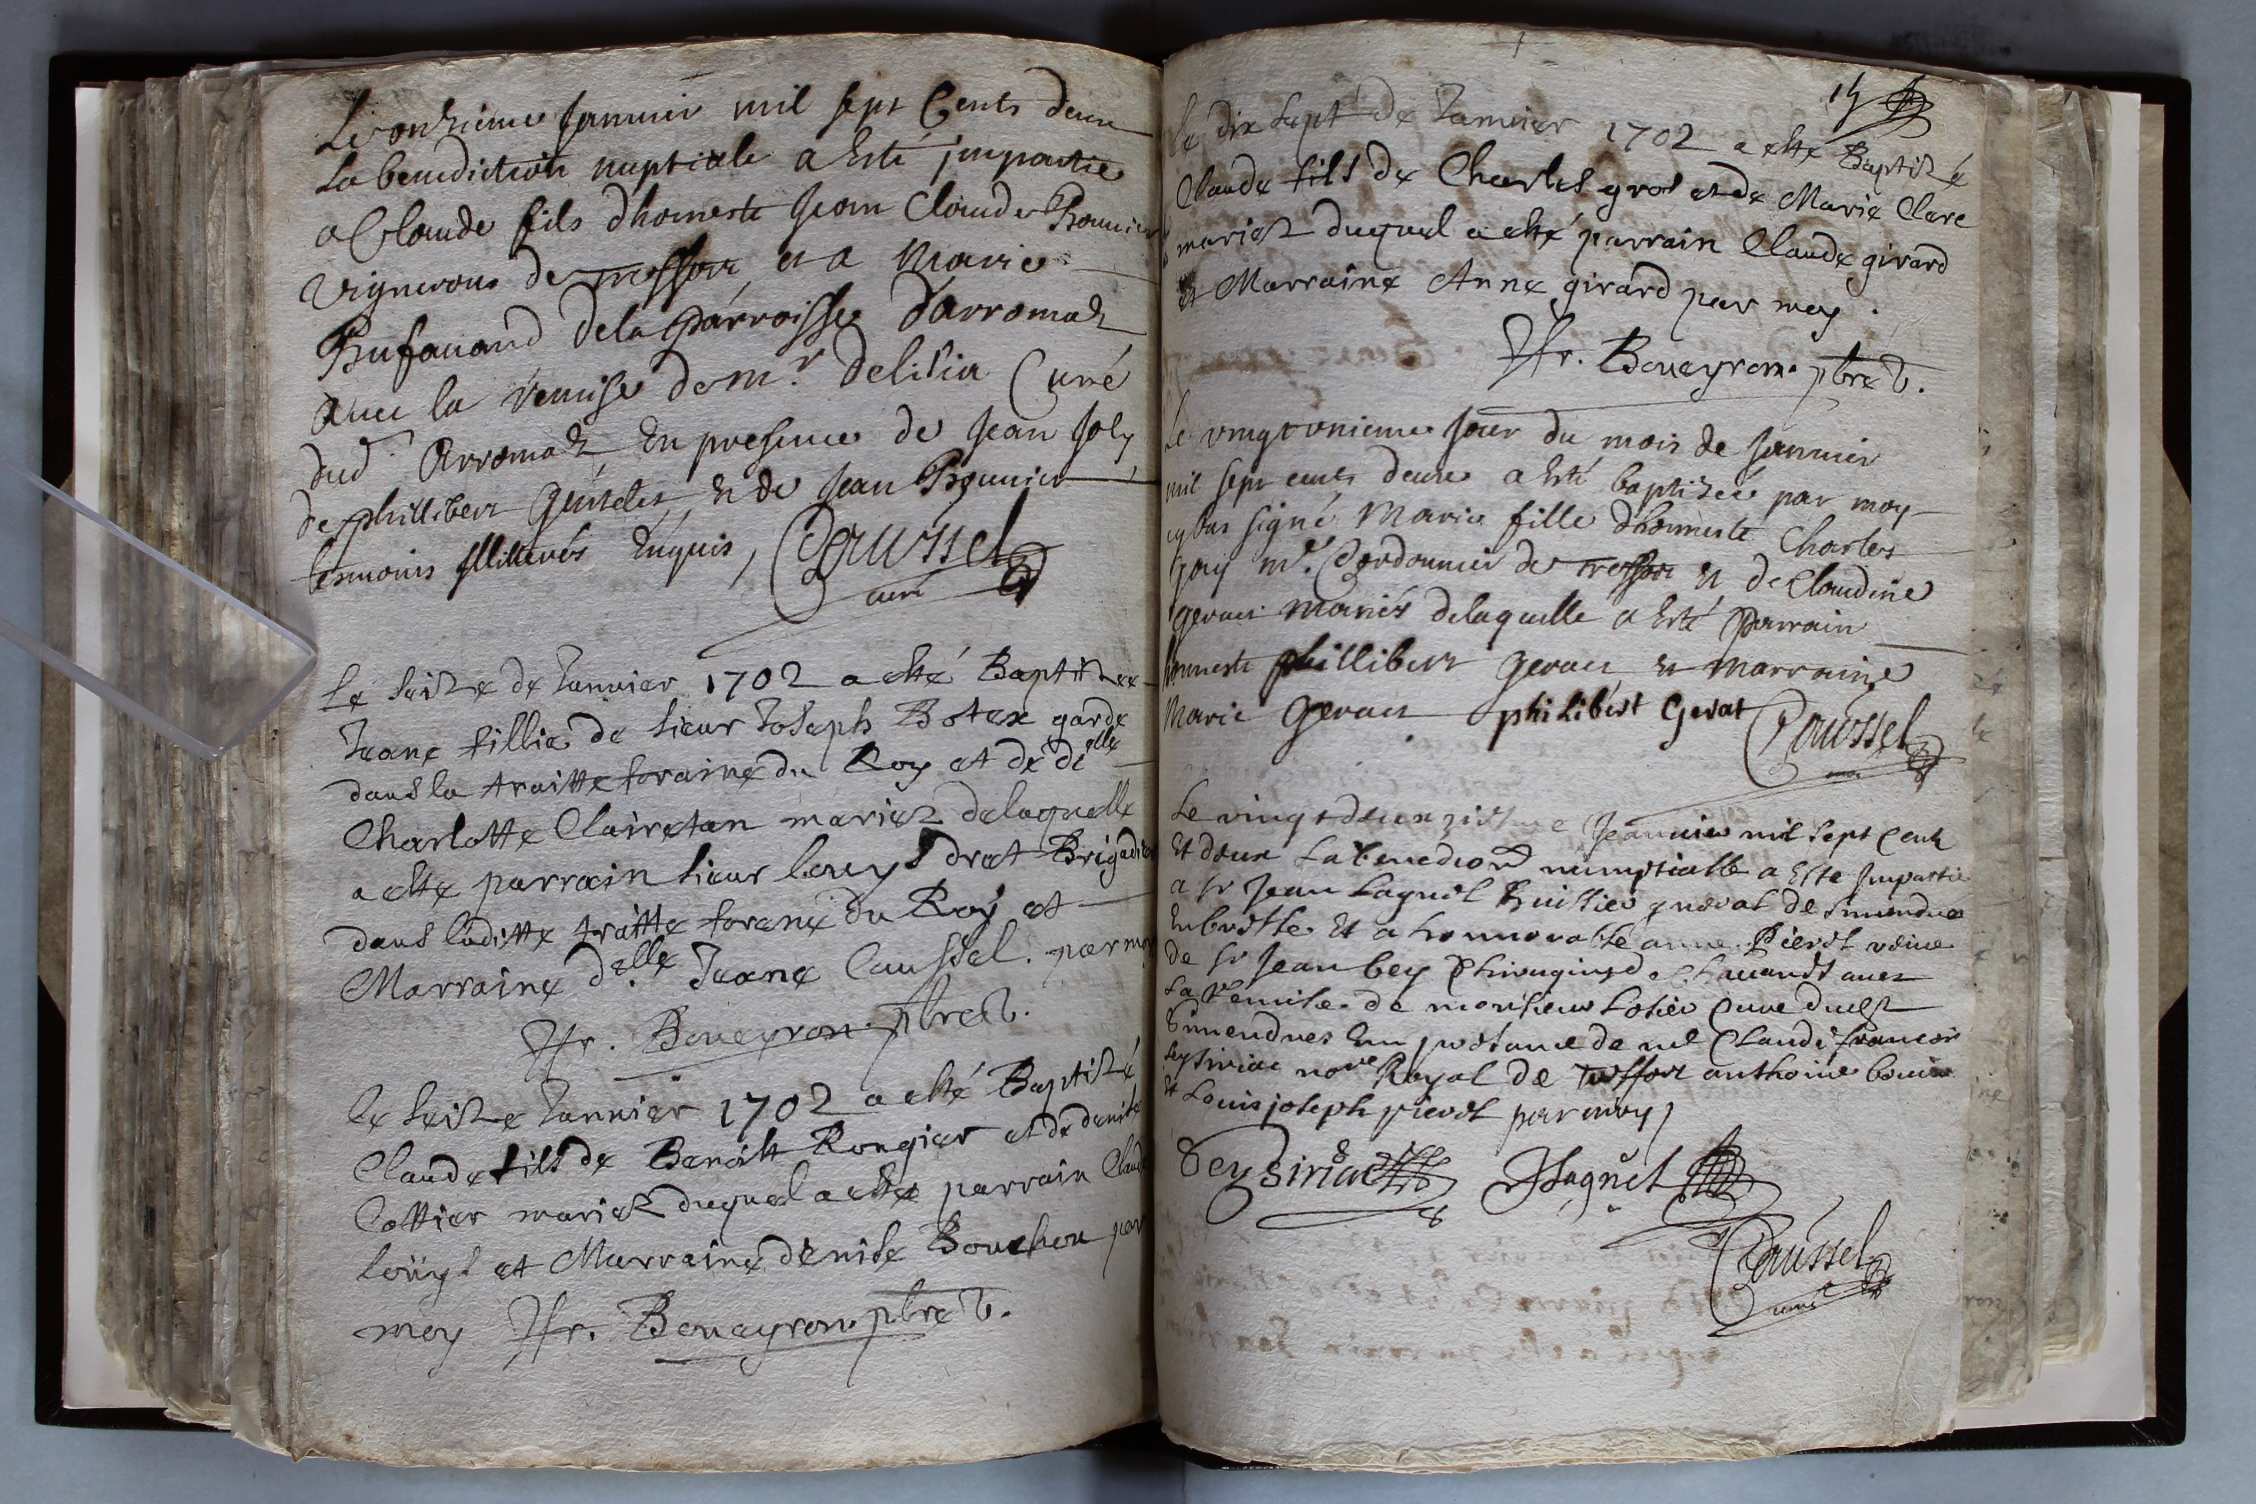 Le onzieme Januier mil sept Cents deux
La benediction nuptiale a esté jmpartie
a Claude fils dhoneste Jean Claude Bounier
vigneron de treffort et a Marie
Bufauand dela parroisse darromas
auec la remise de mr. delisia Curé
dud. Arromas En presence de Jean Joly
de phillibert et de Jean Bounier
tesmoins jllitterés Enquis, Caussel
curé
Le seize de Januier 1702 a esté Baptisee
Jeane fillie de sieur Joseph Botex garde
dans la traitte foraine du Roy et de delle
Charlotte Clairetan mariez delaquelle
a esté parrain sieur louys drat Brigadier
dans laditte traitte forane du Roy et
Marraine d.elle Jeane Caussel. par moy
Fr. Boueyron pbre v.
Le seize Januier 1702 a esté Baptizé
Claude fils de Benoist Rougier et de denise
Cottier mariez duquel a esté parrain Claude
Louys et Marraine denise Bouchou par
moy Fr. Boueyron pbre v.
15
Le dix sept de Januier 1702 a esté Baptizé
Claude fils de Charles gros et de Marie Clare
mariez duquel a esté parrain Claude girard
et Marraine Anne girard par moy.
Fr. Boueyron pbre v.
Le vingt vnieme jour du mois de Januier
mil sept cents deux a esté baptizée par moy
cy bas signé Marie fille dhonneste Charles
gouy mr. Cordonnier de treffort et de Claudine
geruais mariés delaquelle a esté Parrain
honneste phillibert geruais et marraine
Marie geruais philibert Gerat Caussel
Le vingt deuxziesme Jeanuier mil sept Cents
Et deux La benedion numptialle a Este Jmpartie
a sr Jean Lagnet huissier de Simandre
En bresse Et a honnorable anne Pieret veuve
de sr Jean bey Chirurgien de Chauandt auec
La remise de monsieur Curé dudt
Simendres En presence de me Claude francois
Seysiriac nore Royal de treffort anthoine
Et Louis joseph pieret par moy
Seysiriac Lagnet
Caussel
curé